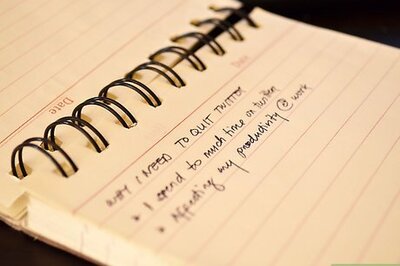 Date
Date
WHY I NEED TO QUIT TWITTER
* I spend to much time on twitter
* Affecting my productivity @ work